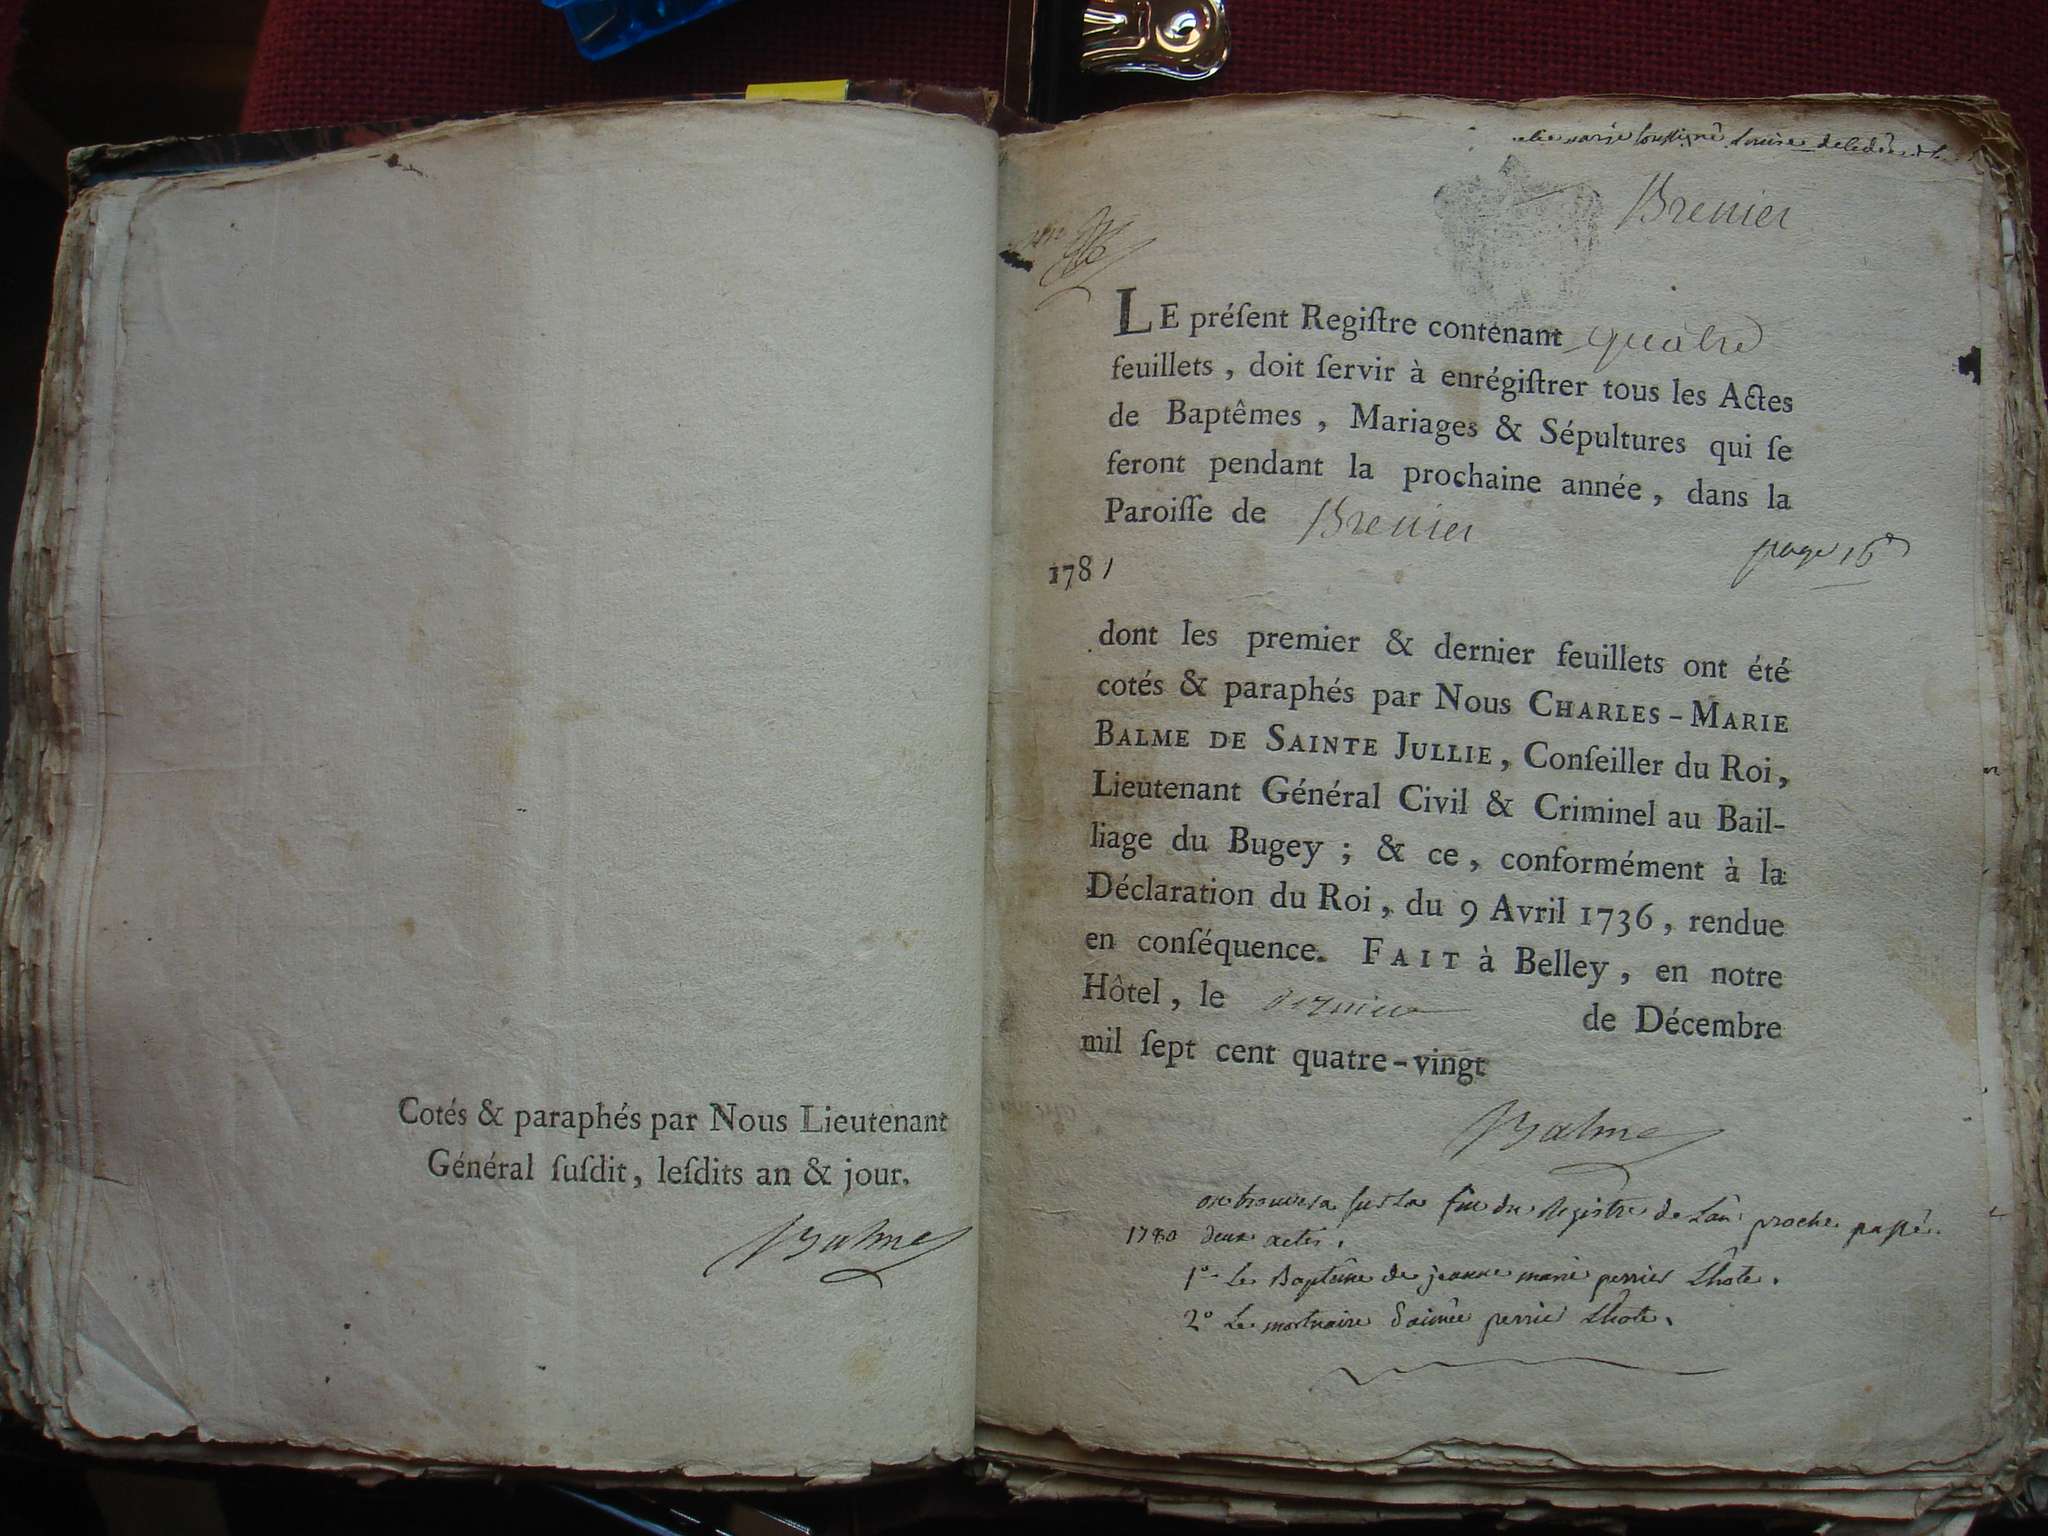 Cotés & paraphés par Nous Lieutenant
Général ſuſdit, leſdits an & jour.
Balme
Brenier
LE préſent Regiſtre contenant quatre
feuillets, doit ſervir à enrégiſtrer tous les Actes
de Baptêmes, Mariages & Sépultures qui ſe
feront pendant la prochaine année, dans la
Paroiſſe de Brenier
page 16
1781
dont les premier & dernier feuillets ont été
cotés & paraphés par Nous CHARLES-MARIE
BALME DE SAINTE JULLIE, Conſeiller du Roi,
Lieutenant Général Civil & Criminel au Bail-
liage du Bugey ; & ce, conformément à la
Déclaration du Roi, du 9 Avril 1736, rendue
en conſéquence. FAIT à Belley, en notre
Hôtel, le de Décembre
mil ſept cent quatre-vingt
Balme
on trouvera sur la fin du Registre de L'an proche passé
1780 deux actes.
1° Le Baptême de jeanne marie perrier Lhote.
2° Le mortuaire d'aimée perrier Lhote.